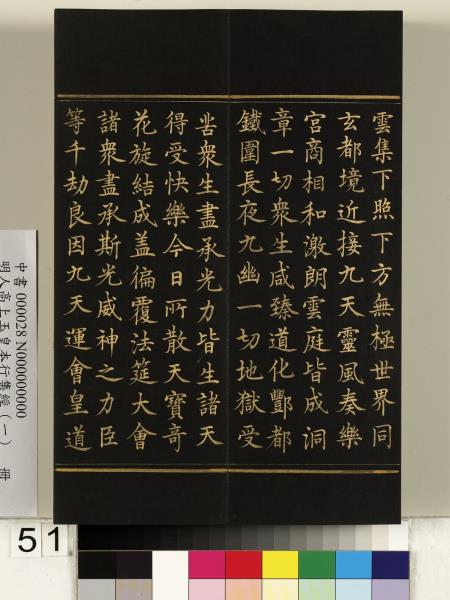 雲集下照下方無極世界同
玄都境近接九天靈風奏樂
宮商相和激朗雲庭皆成洞
章一切衆生咸臻道化酆都
鐵圍長夜九幽一切地獄受
苦衆生盡承光力皆生諸天
得受快樂今日所散天寶奇
花旋結成盖徧覆法筵大會
諸衆盡承斯光威神之力臣
等千劫良因九天運會皇道
中書 000028 N000000000
明人高上玉皇本行集經(一) 冊
51